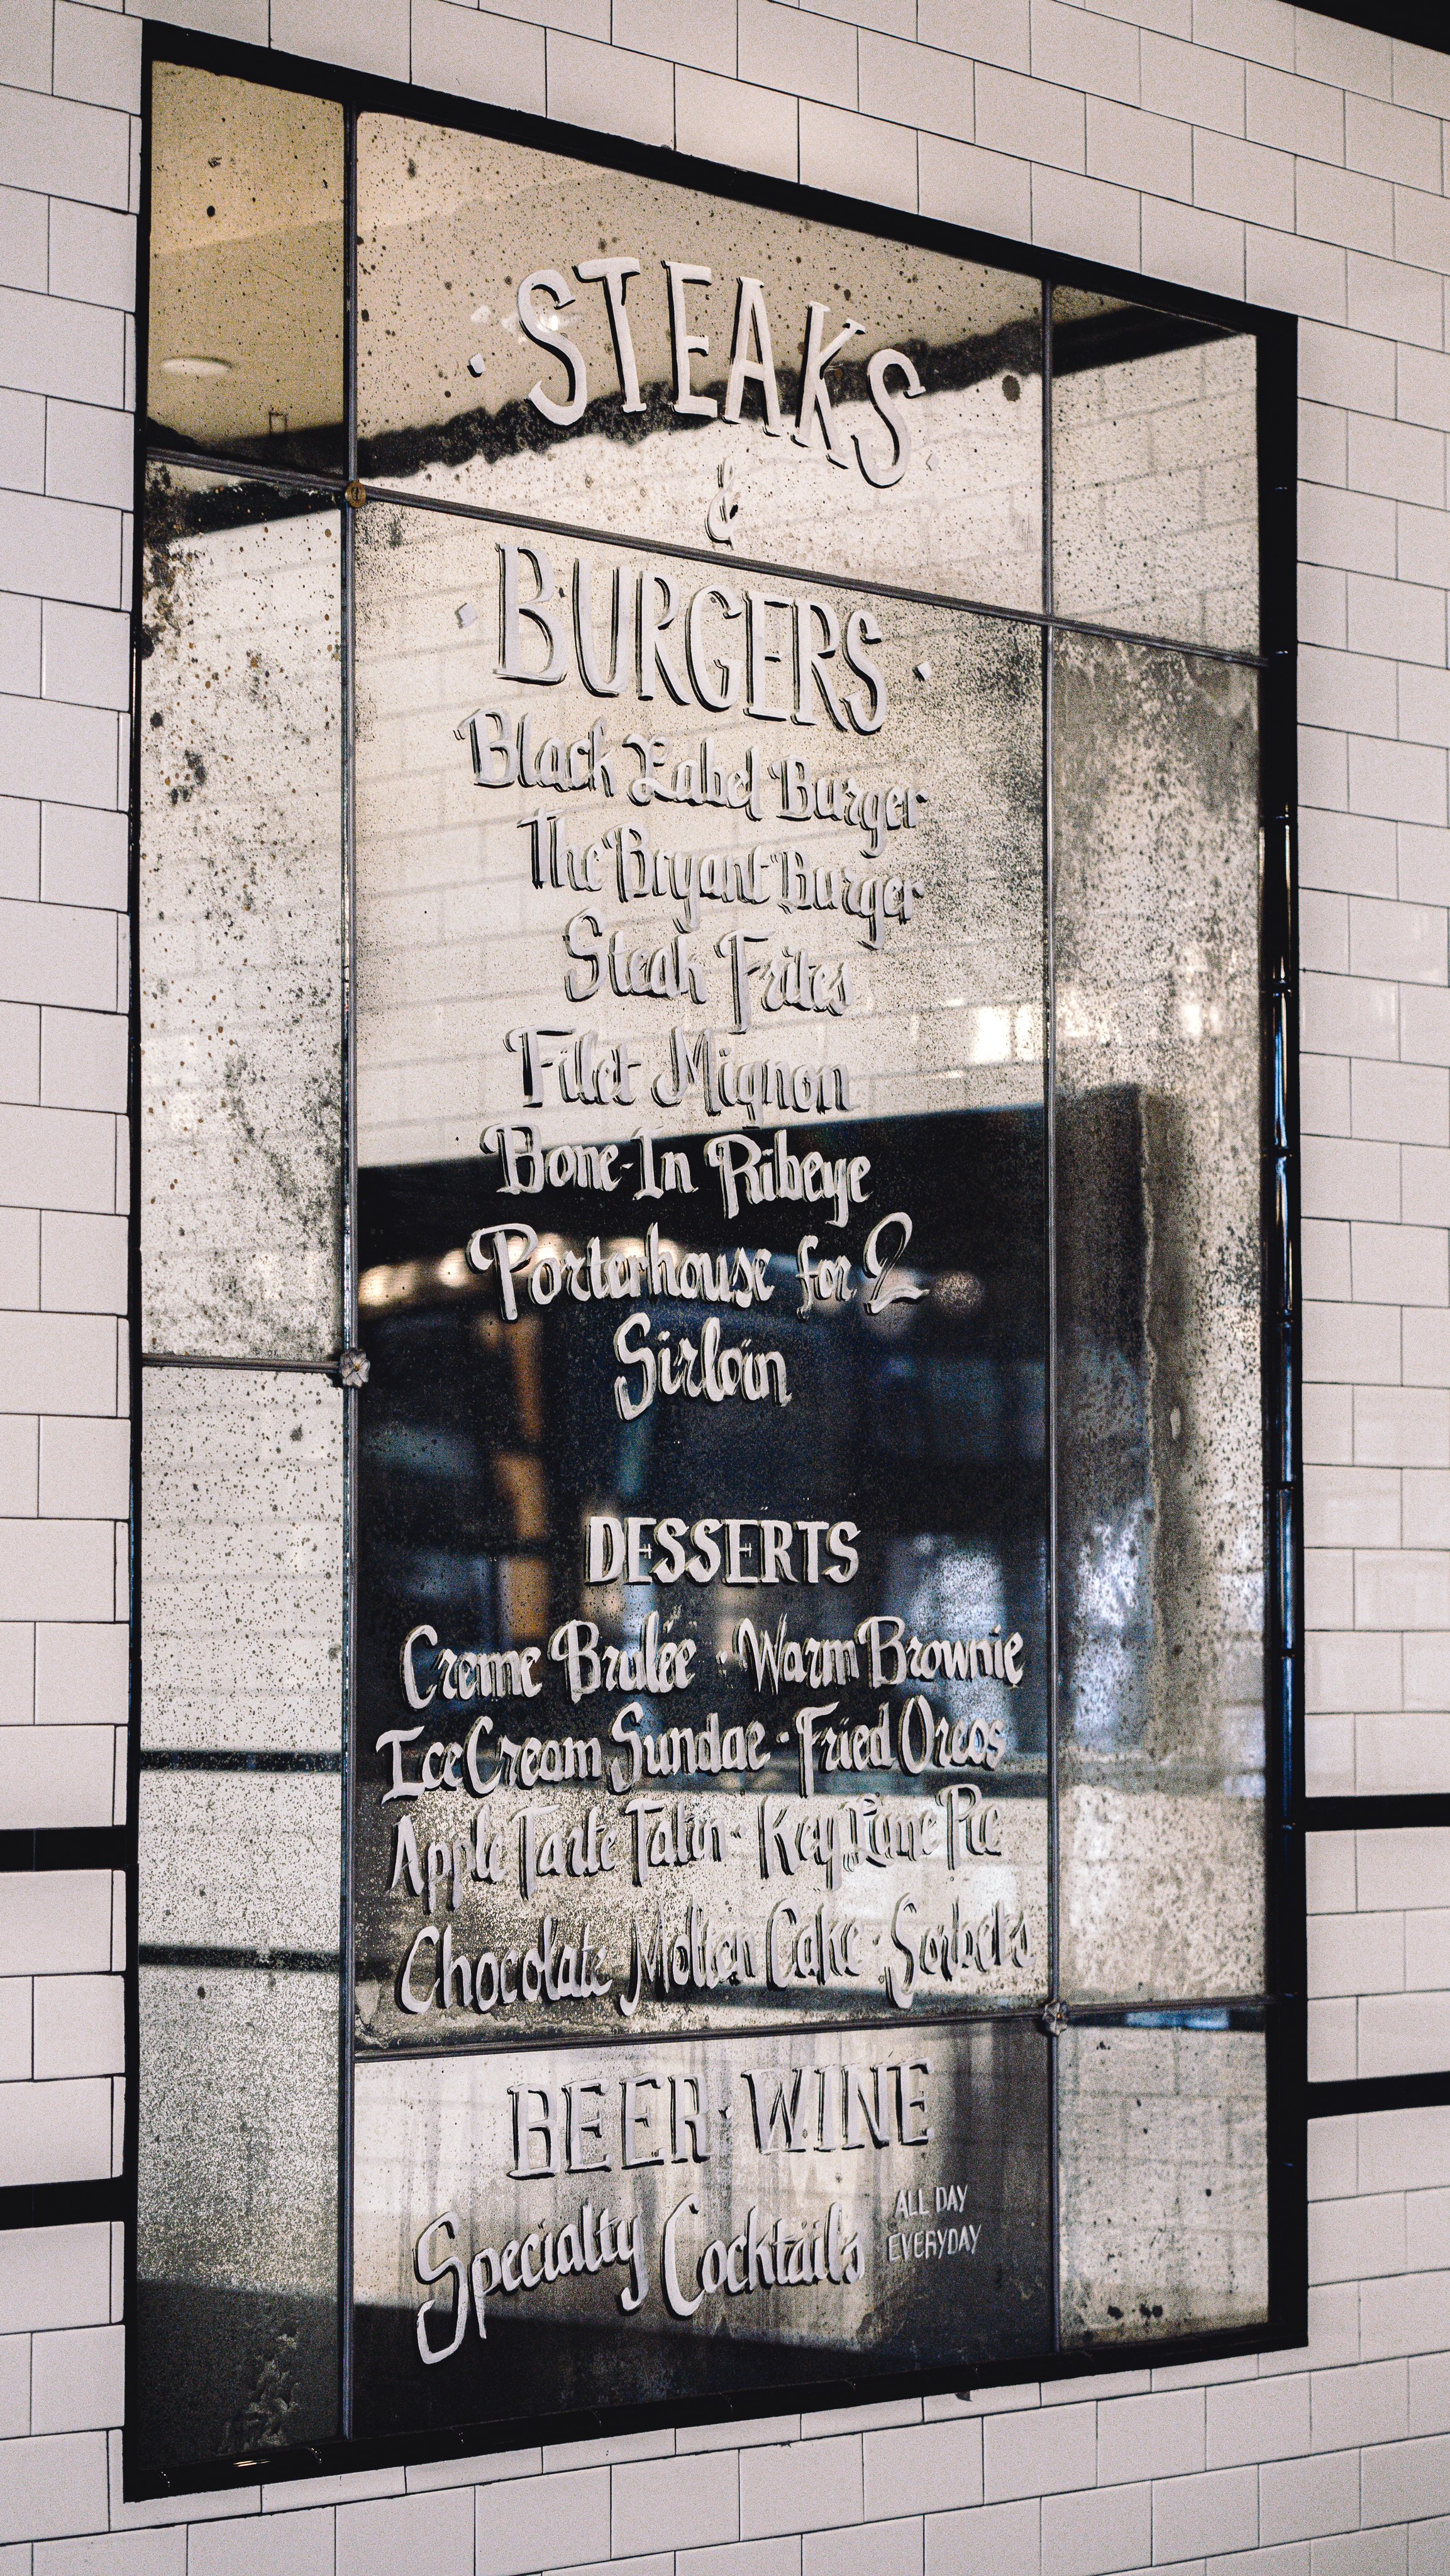 · STEAKS
&
· BURGERS ·
Black Label Burger
The "Bryant" Burger
Steak Frites
Filet Mignon
Bone-In Ribeye
Porterhouse for 2
Sirloin
DESSERTS
Creme Brulée · Warm Brownie
Ice Cream Sundae · Fried Oreos
Apple Tarte Tatin · Key Lime Pie
Chocolate Molten Cake · Sorbets
BEER · WINE
Specialty Cocktails ALL DAY
EVERYDAY